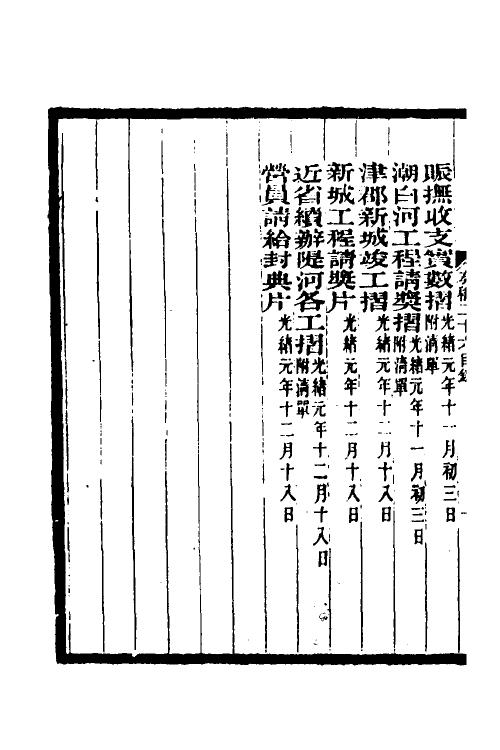 賑撫收支實數摺 附清單 光緒元年十一月初三日
潮白河工程請獎摺 附清單 光緒元年十一月初三日
津郡新城竣工摺 光緒元年十二月十八日
新城工程請獎片 光緒元年十二月十八日
近省續辦隄河各工摺 附清單 光緒元年十二月十八日
營員請給封典片 光緒元年十二月十八日